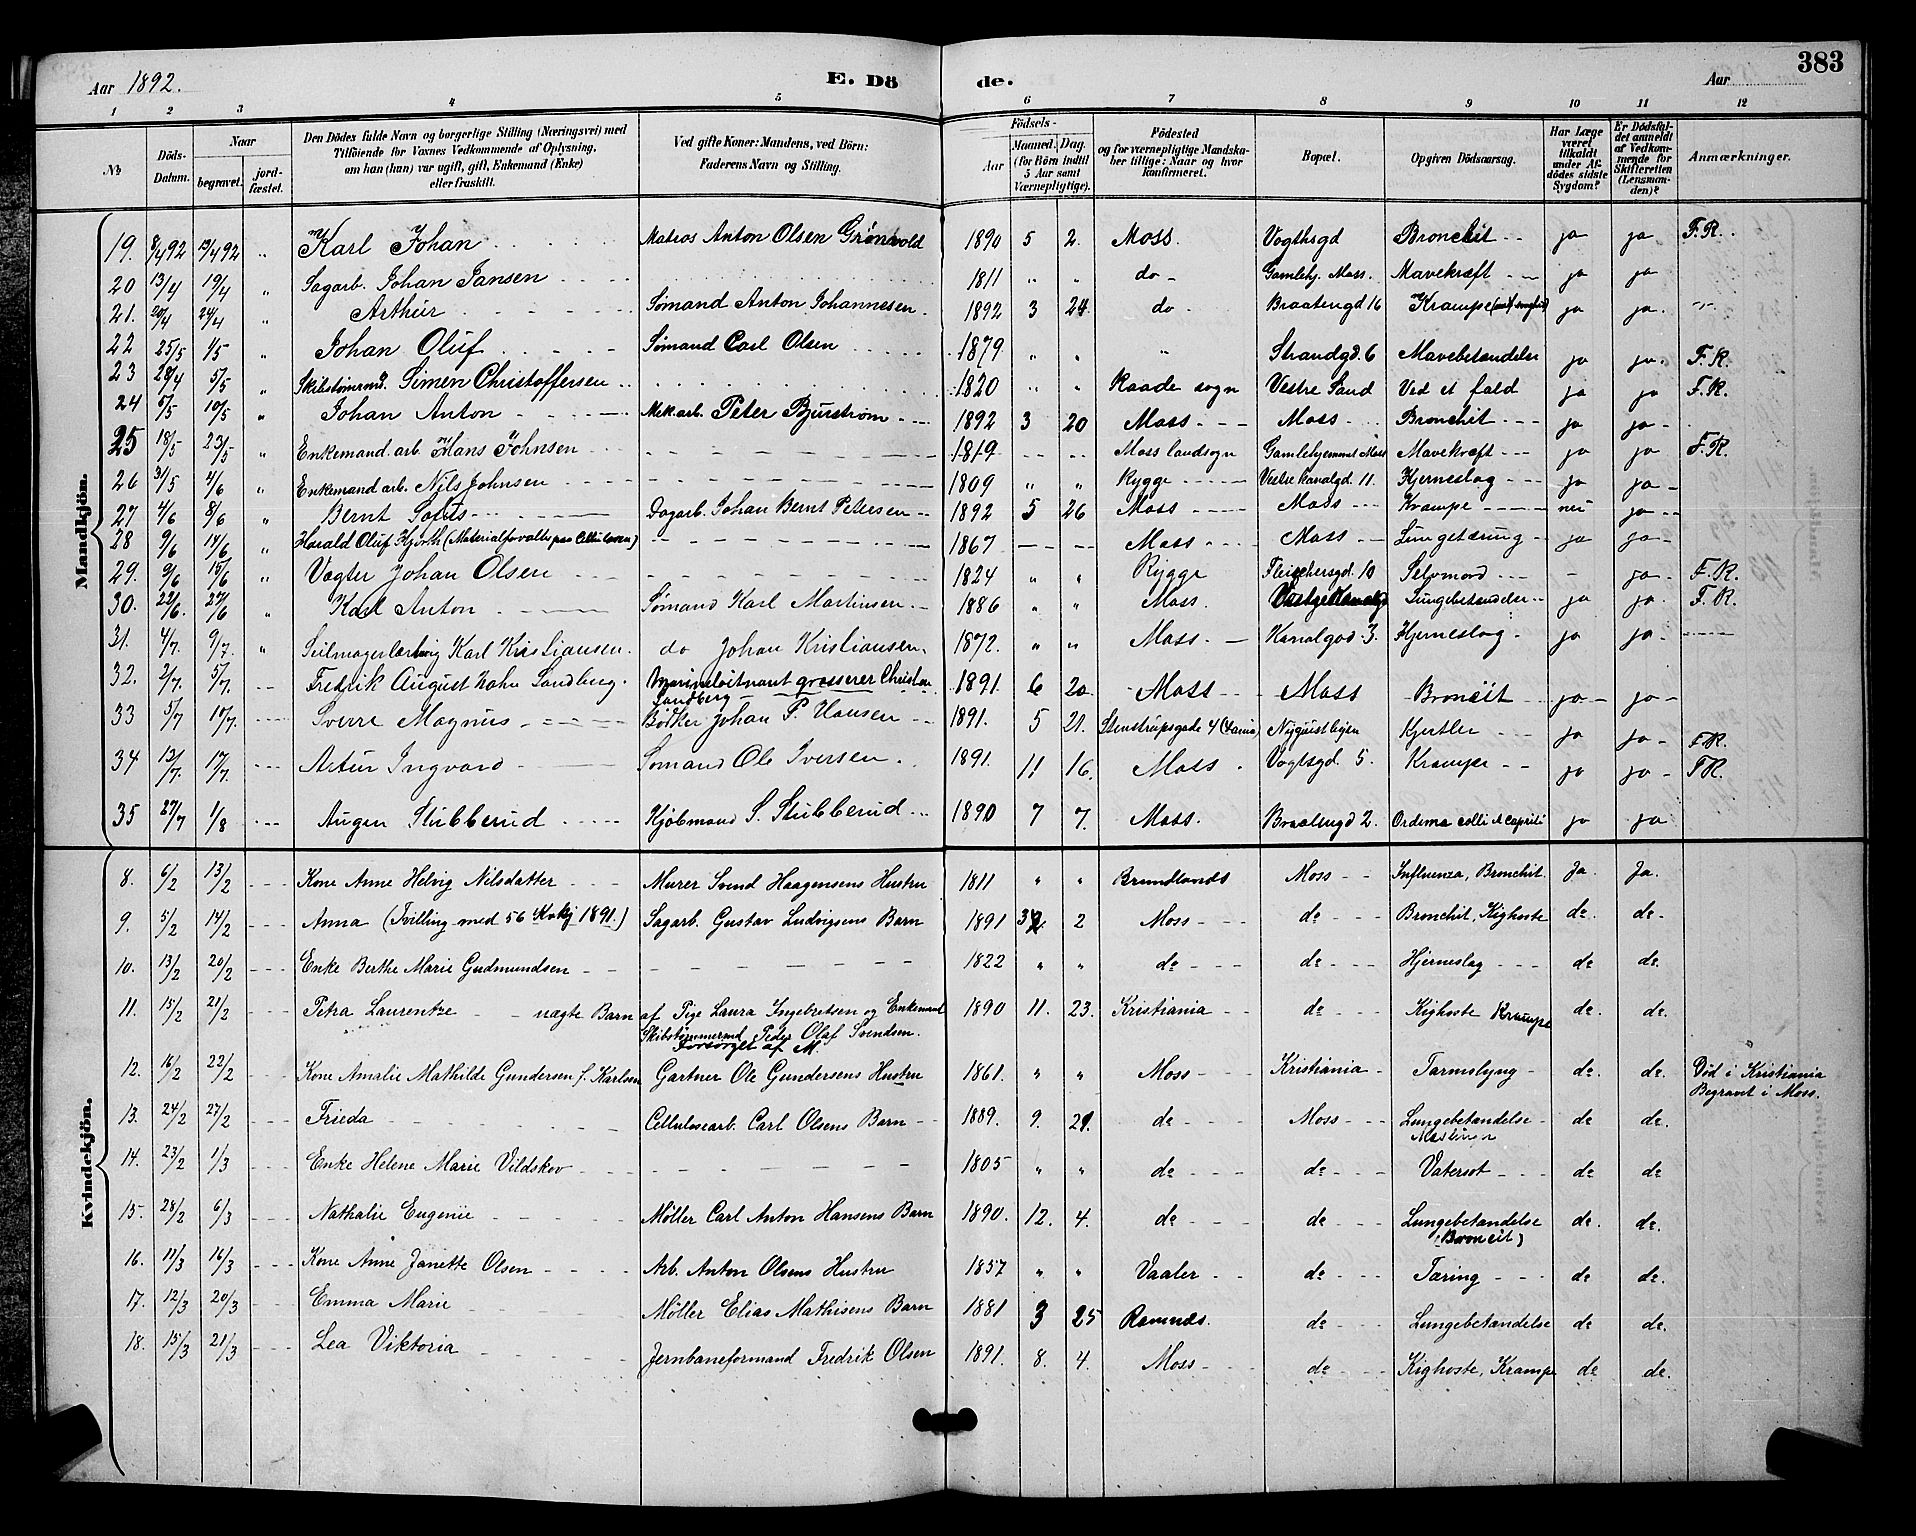 Aar 1892. E. Dö de. Aar 383
1 2 3 4 5 6 7 8 9 10 11 12
№ Döds-Datum. Naar begravet. jord-fæstet. Den Dödes fulde Navn og borgerlige Stilling (Næringsvei) med Tilföiende for Voxnes Vedkommende af Oplysning, om han (hun) var ugift, gift, Enkemand (Enke) eller fraskilt. Ved gifte Koner: Mandens, ved Börn: Faderens Navn og Stilling. Födsels- Aar Maaned. Dag. (for Börn indtil 5 Aar samt Værnepligtige). Födested og for værnepligtige Mandskaber tillige: Naar og hvor konfirmeret. Bopæl. Opgiven Dödsaarsag. Har Læge været tilkaldt under Afdödes sidste Sygdom? Er Dödsfaldet anmeldt af Vedkommende for Skifteretten (Lensmanden)? Anmærkninger.
Mandkjön.
19. 8/4 92 13/4 92 " Karl Johan Matros Anton Olsen Grønvold 1890 5 2. Moss. Vogthsgd Bronchit ja ja F.R.
20 13/4 19/4 " Sagarb. Johan Jansen 1811 " " do Gamlehj. Moss. Mavekræft ja ja
21. 20/4 24/4 " Arthur Sømand Anton Johannesen. 1892 3 24 do Braatengd 16 Krampe ja ja "
22 25/5 1/5 " Johan Oluf Sømand Carl Olsen 1879 " " " Strandgd. 6 Mavebetændelse ja ja F.R.
23 5/5 " Skibstømrmd. Simen Christoffersen 1820 " " Raade sogn Vestre Sand Ved et fald ja ja F.R.
24 5/5 10/5 " Johan Anton Mek. arb. Peter Bjurstrøm 1892 3 20 Moss Moss Bronchit ja ja
25 18/5 23/5 " Enkemand. arb. Hans Johnsen 1819 Moss landsogn Gamlehjemmet Moss Mavekræft ja ja F.R.
26 31/5 4/6 " Enkemand arb. Nils Johnsen 1809 " " Rygge Vestre Kanalgd. 11. Hjerneslag ja ja
27 4/6 8/6 " Bernt Dagarb. Johan Bernt Petersen 1892 5 26 Moss Moss Krampe nei ja
28 9/6 14/6 " Harald Oluf Hjorth (Materialforvalter paa Cellulosen) 1867 Moss Moss Lungetæring ja ja
29. 9/6 15/6 " Vægter Johan Olsen 1824 " " Rygge Fleischersgd. 10 Selvmord - ja F.R.
30. 22/6. 27/6 " Karl Anton Sømand Karl Martinsen 1886 " " Moss. Lungebetændelse ja ja F.R.
31. 4/7. 9/7. " Seilmagerlærling Karl Kristiansen. do Johan Kristiansen. 1872. " " Moss. Kanalgad. 3. Hjerneslag ja ja
32. 2/7. 5/7. Fredrik August Sandberg. Marineløitnant grosserer Christen Sandberg 1891. 6 20 Moss Moss Broncit ja ja
33 5/7 10/7. Sverre Magnus Bødker Johan P. Hansen 1891. 5 21. Stenstrupsgade 4 Nyquistbyen Kjertler ja ja F.R.
34 13/7. 17/7. Artur Ingvard Sømand Ole Iversen 1891. 11 16. Moss Vogtsgd. 5. Krampe ja ja F.R.
35 27/7 1/8 Augen Stubberud Kjøbmand S. Stubberud 1890 7 7. Moss. Braatengd 2. ja ja
Kvindekjön.
8. 6/2 13/2 Kone Anne Helvig Nilsdatter Murer Svend Haagensens Hustru 1811 " " Moss Influenza, Bronchit. Ja. Ja.
9. 5/2 14/2 Anna (Tvilling med 56 1891.) Sagarb. Gustav Ludvigsens Barn 1891 2 Moss do Bronchit, Kighoste do. do
10. 13/2 20/2 Enke Berthe Marie Gudmundsen 1822 " " do do Hjerneslag do do.
11. 15/2 21/2 Petra Laurentze uægte Barn af Pige Laura Ingebretsen og Enkemand
Skibstømmermd Peder Olaf Svendsen.
Forsørget af M. 1890 11. 23. Kristiania do Kighoste Krampe do. do.
12. 16/2 22/2 Kone Amalie Mathilde Gundersen f. Karlsen Gartner Ole Gundersens Hustru 1861. " " Moss Kristiania Tarmslyng do. do. Død i Kristiania
Begravet i Moss.
13. 24/2 27/2 Frieda Cellulosearb. Carl Olsens Barn 1889. 9. 21. do Moss Lungebetændelse
Mæslinger do do.
14. 23/2 1/3 Enke Helene Marie Vildskov 1805 " " do do Vatersot do do.
15. 28/2 6/3 Nathalie Eugenie Møller Carl Anton Hansens Barn 1890. 12. 4. do do Lungebetændelse
(Broncit) do. do.
16. 11/3 16/3 Kone Anne Janette Olsen Arb. Anton Olsens Hustru 1857 " " Vaaler do Tæring do do.
17. 12/3 20/3 Emma Marie Møller Elias Mathisens Barn 1881 3 25 Ramnæs. do Lungebetændelse do do.
18. 15/3 21/3 Lea Viktoria Jernbaneformand Fredrik Olsen 1891. 8. 4. Moss do Kighoste, Krampe do do.